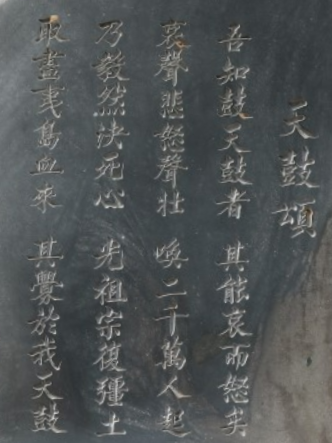 天鼓頌
吾知鼓天鼓者 其能哀而怒矣
哀聲悲怒聲壯 喚二千萬人起
乃毅然決死心 光祖宗復疆土
取盡夷島血來 其釁於我天鼓